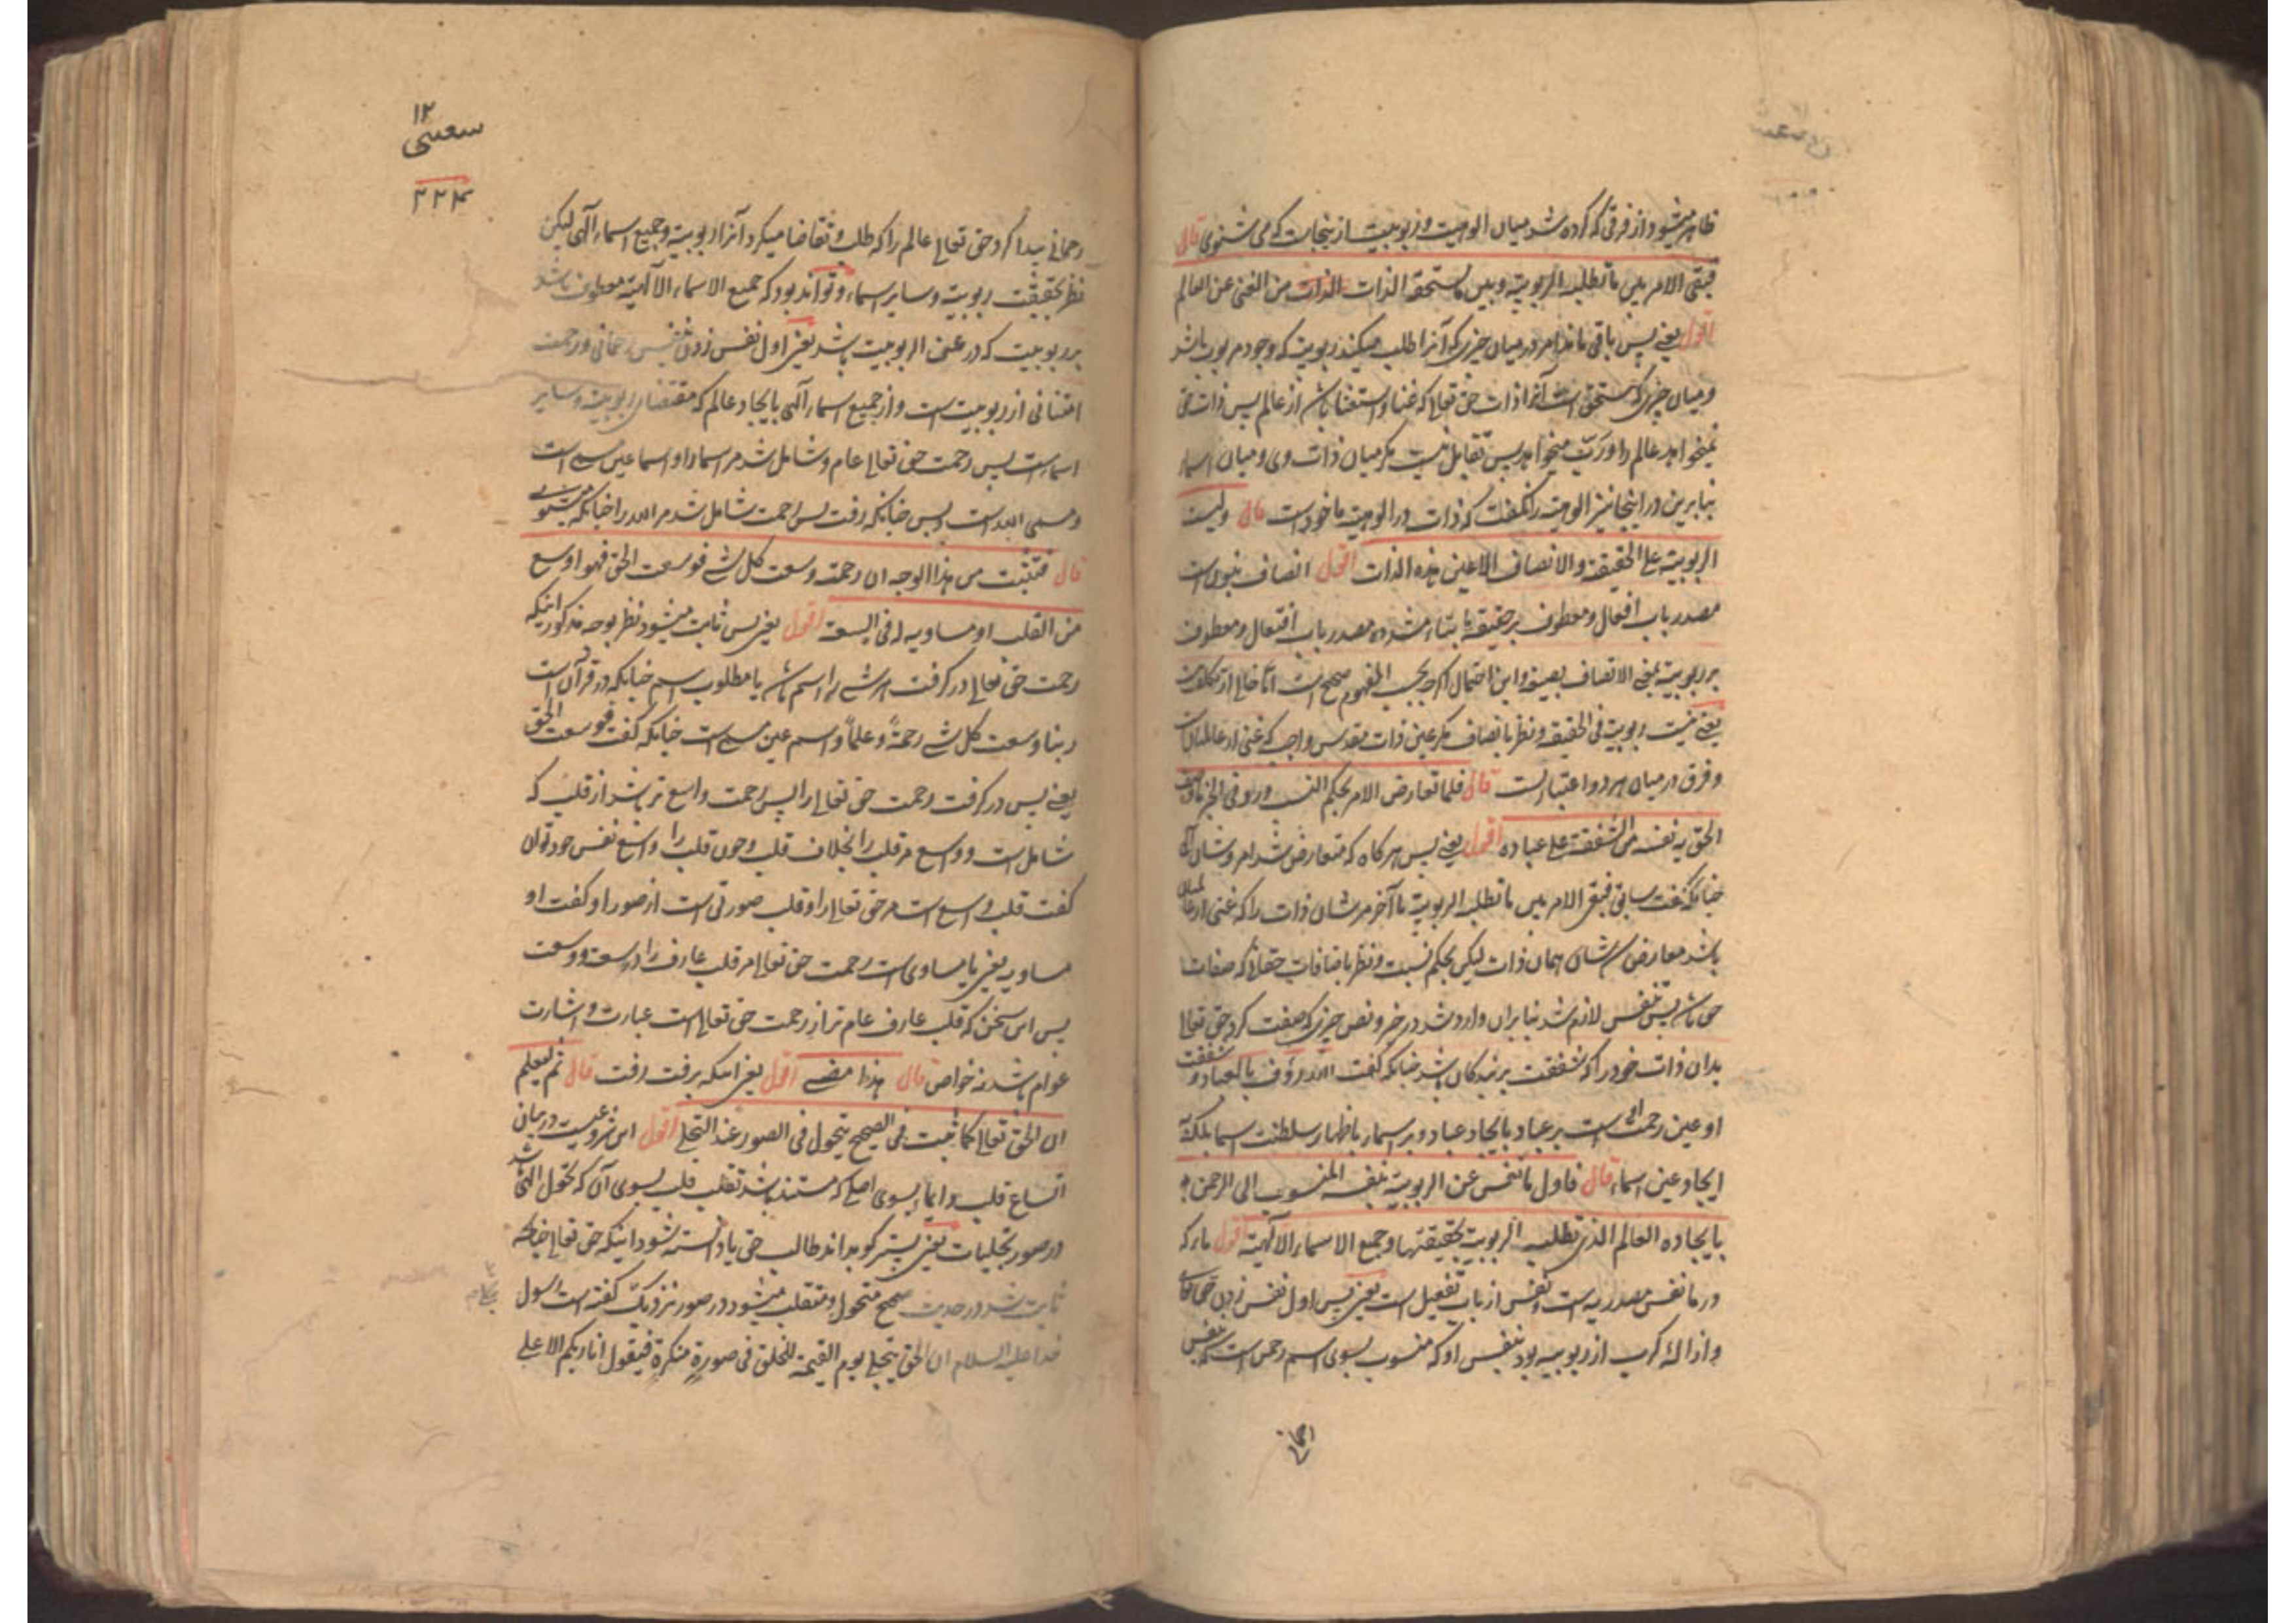 ظاهر میشود از فرقی که کرده شد میان الوهیت و ربوبیت ازینجاست که می شنوی قال
فبقی الامر بین ما تطلبه الربوبیة وبین ما تستحقه الذات من الغنی عن العالم
اقول یعنی پس باقی ماند امر در میان چیزی که آنرا طلب میکند ربوبیت که وجود مربوب باشد
و میان چیزی که مستحق است آنرا ذات حق تعالی که غنا و استغنا باشد از عالم پس ذات حق
نمیخواهد عالم را و رب میخواهد پس تقابل نیست مگر میان ذات وی و میان اسما
بنابرین در اینجا نیز الوهیت را نگفت که ذات در الوهیت ماخوذ است قال ولیست
الربوبیة علی الحقیقة والاتصاف الا عین هذه الذات اقول اتصاف
مصدر باب افعال و معطوف بر حقیقة یا بتاء مشدده مصدر باب افتعال و معطوف
بر ربوبیة بمعنی الاتصاف بعینه و این احتمال اگرچه بحسب المفهوم صحیح است اما خالی از تکلف
یعنی نیست ربوبیت فی الحقیقة و نظر باتصاف مگر عین ذات مقدس واجب که غنی از عالمیان
و فرق در میان هر دو اعتباریست قال فلما تعارض الامر بحکم النسب ورد فی الخبر ما وصف
الحق به نفسه من الشفقة علی عباده اقول یعنی پس هرگاه که متعارض شد امر و شان
چنانکه گفت سابق فبقی الامر بین ما تطلبه الربوبیة تا آخر مر شان ذات را که غنی از عالمیان
باشد معارض شان همان ذات لیکن بحکم نسبت و نظر باضافات حقانی که صفات
پس تنفس لازم شد بنابران وارد شد در خبر و نص چیزی که صفت کرد حق تعالی
بدان ذات خود را که شفقت بر بندگان باشد چنانکه گفت الله رؤف بالعباد و شفقت
او عین رحمت است بر عباد بایجاد عباد و بر اسماء باظهار سلطنت اسما بلکه
ایجاد عین اسماء قال فاول ما نفس عن الربوبیة بنفسه المنسوب الی الرحمن
بایجاده العالم الذی تطلبه الربوبیة بحقیقتها وجمیع الاسماء الالهیة اقول ماء که
در ما نفس مصدریه است و نفس از باب تفعیل است یعنی پس اول نفس زدن حق تعالی
و ازاله کرب از ربوبیه بود بنفس او که منسوب بسوی اسم رحمن است که بنفس
۱۲
۳۲۴
رحمانی پیدا کرد حق تعالی عالم را که طلب و تقاضا میکرد آنرا ربوبیة و جمیع اسماء الهی لیکن
نظر بحقیقت ربوبیة و سایر اسماء و تواند بود که جمیع الاسماء الالهیة معطوف باشد
بر ربوبیت که در عن الربوبیت باشد یعنی اول نفس زدن بنفس رحمانی و رحمت
امتنانی از ربوبیت است و از جمیع اسماء الهی بایجاد عالم که مقتضای ربوبیة و سایر
اسماست پس رحمت حق تعالی عام و شامل شد مر اسما را و اسما عین مسمی است
و مسمی الله است و بس چنانکه رفت پس رحمت شامل شد مر الله را چنانکه میشنوی
قال فثبت من هذا الوجه ان رحمته وسعت کل شی فوسعت الحق فهو اوسع
من القلب او مساویه له فی السعة اقول یعنی پس ثابت میشود نظر بوجه مذکور اینکه
رحمت حق تعالی در گرفت هر شی را اسم باشد یا مطلوب اسم چنانکه در قرآن است
ربنا وسعت کل شی رحمة وعلما و اسم عین مسمی است چنانکه گفت فوسعت الحق
یعنی پس در گرفت رحمت حق تعالی را پس رحمت واسع تر باشد از قلب که
شامل است و واسع مر قلب را بخلاف قلب و چون قلب را واسع نفس خود توان
گفت قلب واسع است مر حق تعالی را و قلب صورتی است از صور او گفت او
مساویه یعنی یا مساوی است رحمت حق تعالی مر قلب عارف را در سعة و وسعت
پس این سخن که قلب عارف عام تر از رحمت حق تعالی است عبارت و اشارت
عوام باشد نه خواص قال هذا مضی اقول یعنی اینکه برفت رفت قال ثم لیعلم
ان الحق تعالی کما ثبت فی الصحیح یتحول فی الصور عند التجلی اقول این شروعیست در بیان
اتساع قلب و ایماء بسوی اصلی که مستند باشد تقلب قلب بسوی آن که تحول الهی باشد
در صور تجلیات یعنی پستر گو بداند طالب حق یا دانسته شود اینکه حق تعالی چنانکه
ثابت شد در حدیث صحیح متحول و متقلب میشود در صور نزدیک گفته است رسول
خدا علیه السلام ان الحق یتجلی یوم القیمة للخلق فی صورة منکرة فیقول انا ربکم الاعلی